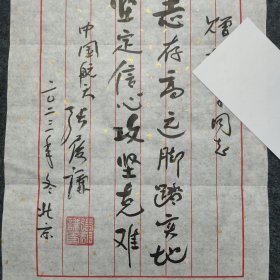 赠
同志
志存高远脚踏实地
坚定信心攻坚克难
中国航天
张履谦
二〇二二年冬北京